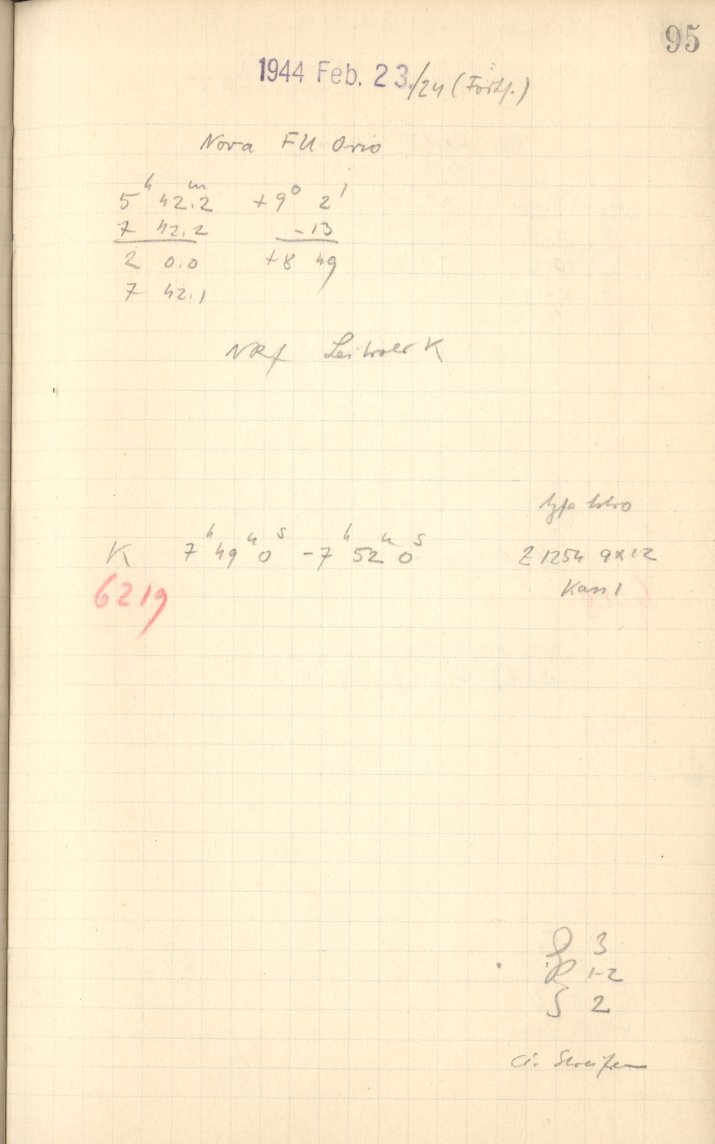 95
1944 Feb. 23./24 (Forts.)
Nova FU Orio
5h 42m.2 +9° 2'
7 42.2 -13
2 0.0 +8 49
7 42.1
Leitrohr K
K 7h 49m 0s - 7h 52m 0s
Z 1254 9x12
6219
Kass 1
3
R 1-2
S 2
Ci. Streifen